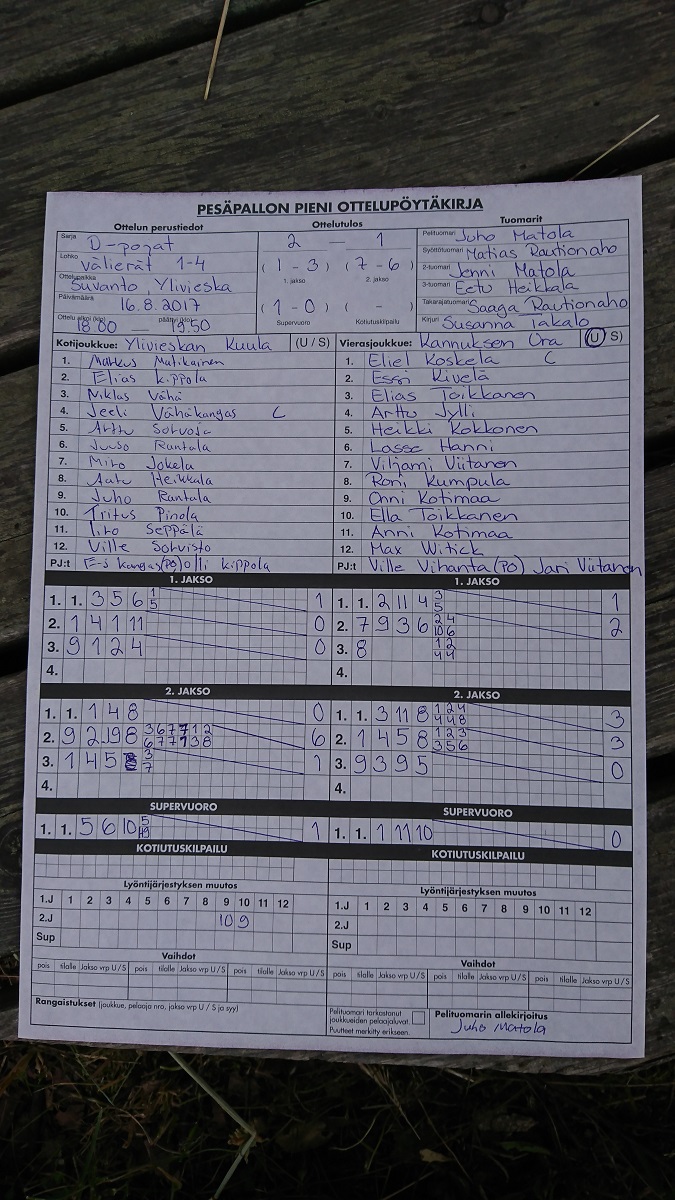 PESÄPALLON PIENI OTTELUPÖYTÄKIRJA
Ottelun perustiedot Ottelutulos Tuomarit
Sarja D-pojat 2 — 1 Pelituomari Juho Matola
Lohko välierät 1-4 (1 - 3) (7 - 6) Syöttötuomari Matias Rautionaho
Ottelupaikka Suvanto, Ylivieska 1. jakso 2. jakso 2-tuomari Jenni Matola
Päivämäärä 16.8.2017 (1 - 0) ( - ) 3-tuomari Eetu Heikkala
Ottelu alkoi (klo) 18.00 — päättyi (klo) 19.50 Supervuoro Kotiutuskilpailu Takarajatuomari Saaga Rautionaho
Kirjuri Susanna Takalo
Kotijoukkue: Ylivieskan Kuula (U / S) Vierasjoukkue: Kannuksen Ura (U / S)
1. Markus Matikainen 1. Eliel Koskela C
2. Elias Kippola 2. Essi Kivelä
3. Niklas Vähä 3. Elias Toikkanen
4. Jeeli Vähäkangas C 4. Arttu Jylli
5. Arttu Sorvoja 5. Heikki Kokkonen
6. Juuso Rantala 6. Lasse Hanni
7. Miro Jokela 7. Viljami Viitanen
8. Aatu Heikkala 8. Roni Kumpula
9. Juho Rantala 9. Onni Kotimaa
10. Pinola 10. Ella Toikkanen
11. Iiro Seppälä 11. Anni Kotimaa
12. Ville Sorvisto 12. Max Witick
PJ:t E-S Kangas (PO) Olli Kippola PJ:t Ville Vihanta (PO) Jari Viitanen
1. JAKSO 1. JAKSO
1. 1. 3 5 6 1 5 1 1. 1. 2 11 4 3 5 1
2. 1 4 1 11 0 2. 7 9 3 6 2 4 10 6 2
3. 9 1 2 4 0 3. 8 1 2 4 4
4. 4.
2. JAKSO 2. JAKSO
1. 1. 1 4 8 0 1. 1. 3 11 8 1 2 4 4 4 8 3
2. 9 2 8 6 2. 1 4 5 8 1 2 3 3 5 6 3
3. 1 4 5 3 7 1 3. 9 3 9 5 0
4. 4.
SUPERVUORO SUPERVUORO
1. 1. 5 6 10 5 1 1. 1. 1 11 10 0
KOTIUTUSKILPAILU KOTIUTUSKILPAILU
Lyöntijärjestyksen muutos Lyöntijärjestyksen muutos
1.J 1 2 3 4 5 6 7 8 9 10 11 12 1.J 1 2 3 4 5 6 7 8 9 10 11 12
2.J 10 9 2.J
Sup Sup
Vaihdot Vaihdot
pois tilalle Jakso vrp U / S pois tilalle Jakso vrp U / S pois tilalle Jakso vrp U / S pois tilalle Jakso vrp U / S pois tilalle Jakso vrp U / S pois tilalle Jakso vrp U / S
Rangaistukset (joukkue, pelaaja nro, jakso vrp U / S ja syy) Pelituomari tarkastanut joukkueiden pelaajaluvat. Puutteet merkitty erikseen. Pelituomarin allekirjoitus
Juho Matola